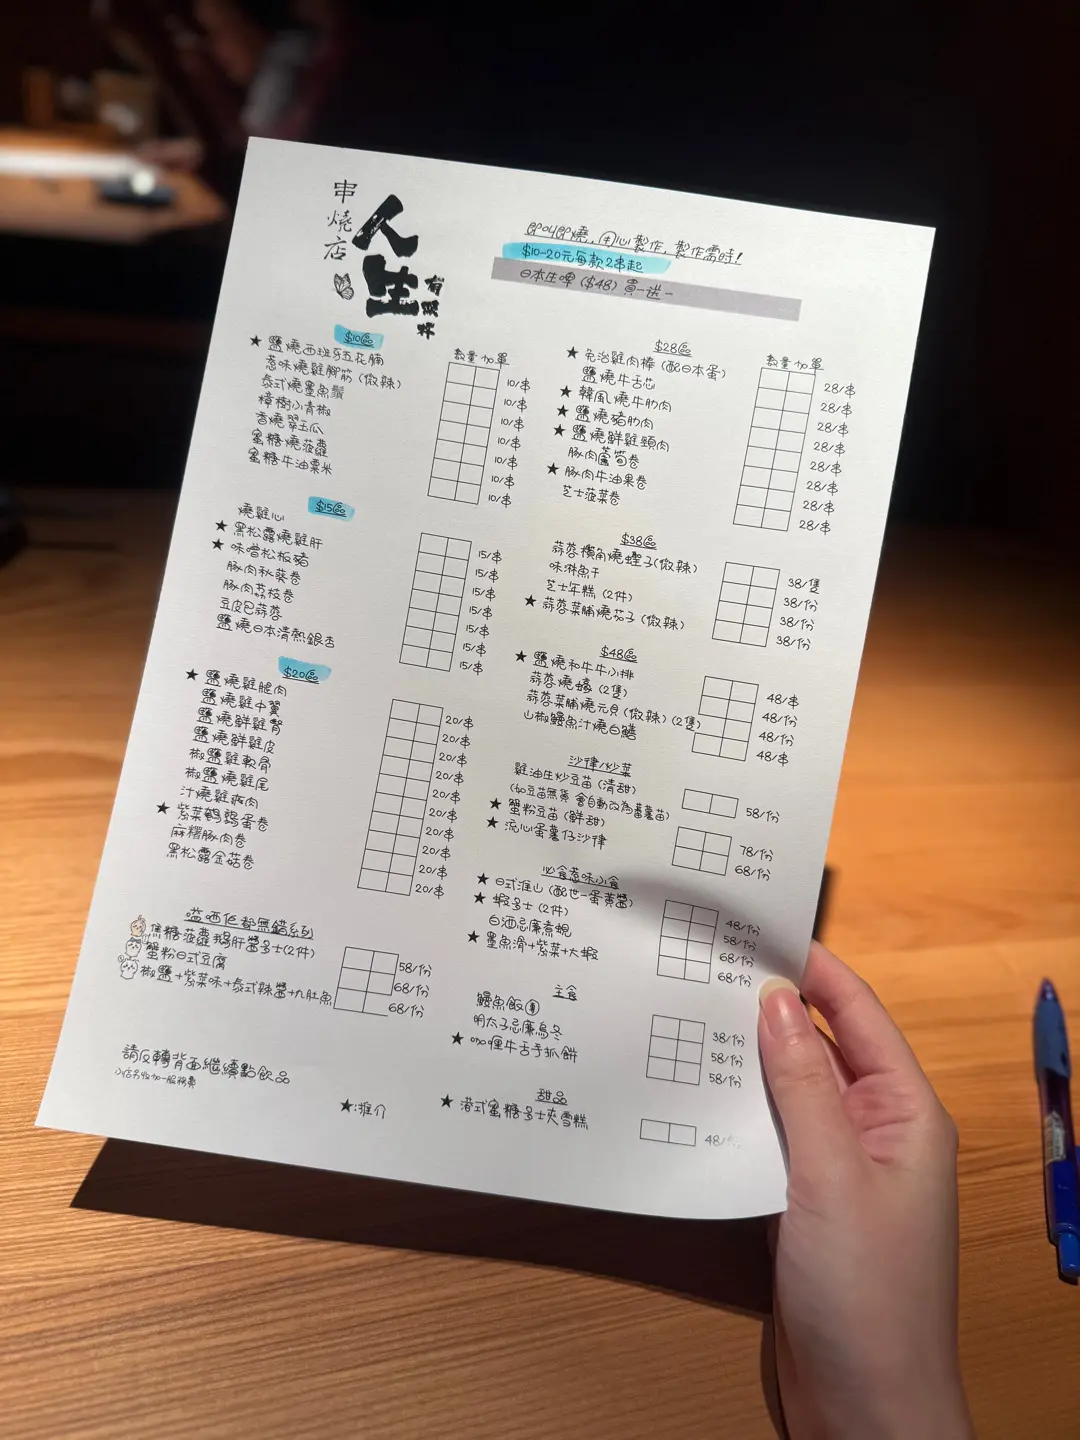 串燒店
人生
有限杯
即叫即燒，用心製作，製作需時！
$10-20元每款2串起
日本生啤 ($48) 買一送一
$10區
數量 加單
★ 鹽燒西班牙五花腩 10/串
惹味燒雞腳筋 (微辣) 10/串
泰式燒墨魚鬚 10/串
樟樹小青椒 10/串
香燒翠玉瓜 10/串
蜜糖燒菠蘿 10/串
蜜糖牛油粟米 10/串
$15區
燒雞心 15/串
★ 黑松露燒雞肝 15/串
★ 味噌松板豬 15/串
豚肉秋葵卷 15/串
豚肉荔枝卷 15/串
豆皮巴蒜蓉 15/串
鹽燒日本清熱銀杏 15/串
$20區
★ 鹽燒雞腿肉 20/串
鹽燒雞中翼 20/串
鹽燒鮮雞腎 20/串
鹽燒鮮雞皮 20/串
椒鹽雞軟骨 20/串
椒鹽燒雞尾 20/串
汁燒雞 肉 20/串
★ 紫菜鵪鶉蛋卷 20/串
麻糬豚肉卷 20/串
黑松露金菇卷 20/串
嗌晒佢都無錯系列
焦糖菠蘿鵝肝醬多士(2件) 58/份
蟹粉日式豆腐 68/份
椒鹽+紫菜味+泰式辣醬+九肚魚 68/份
請反轉背面繼續點飲品
小店另收加一服務費
★:推介
$28區
數量 加單
★ 免治雞肉棒 (配日本蛋) 28/串
鹽燒牛舌芯 28/串
★ 韓風燒牛肋肉 28/串
★ 鹽燒豬肋肉 28/串
★ 鹽燒鮮雞頸肉 28/串
豚肉蘆筍卷 28/串
★ 豚肉牛油果卷 28/串
芝士菠菜卷 28/串
$38區
蒜蓉欖角燒蟶子(微辣) 38/隻
味淋魚干 38/份
芝士年糕 (2件) 38/份
★ 蒜蓉菜脯燒茄子 (微辣) 38/份
$48區
★ 鹽燒和牛牛小排 48/串
蒜蓉燒蠔 (2隻) 48/份
蒜蓉菜脯燒元貝 (微辣) (2隻) 48/份
山椒鰻魚汁燒白鱔 48/串
沙律/炒菜
雞油生炒豆苗 (清甜) 58/份
(如豆苗無貨 會自動改為蕃薯苗)
★ 蟹粉豆苗 (鮮甜) 78/份
★ 流心蛋薯仔沙律 68/份
必食惹味小食
★ 日式淮山 (配世一蛋黃醬) 48/份
★ 蝦多士 (2件) 58/份
白酒忌廉煮蜆 68/份
★ 墨魚滑+紫菜+大蝦 68/份
主食
鰻魚飯 38/份
明太子忌廉烏冬 58/份
★ 咖喱牛舌手抓餅 58/份
甜品
★ 港式蜜糖多士夾雪糕 48/